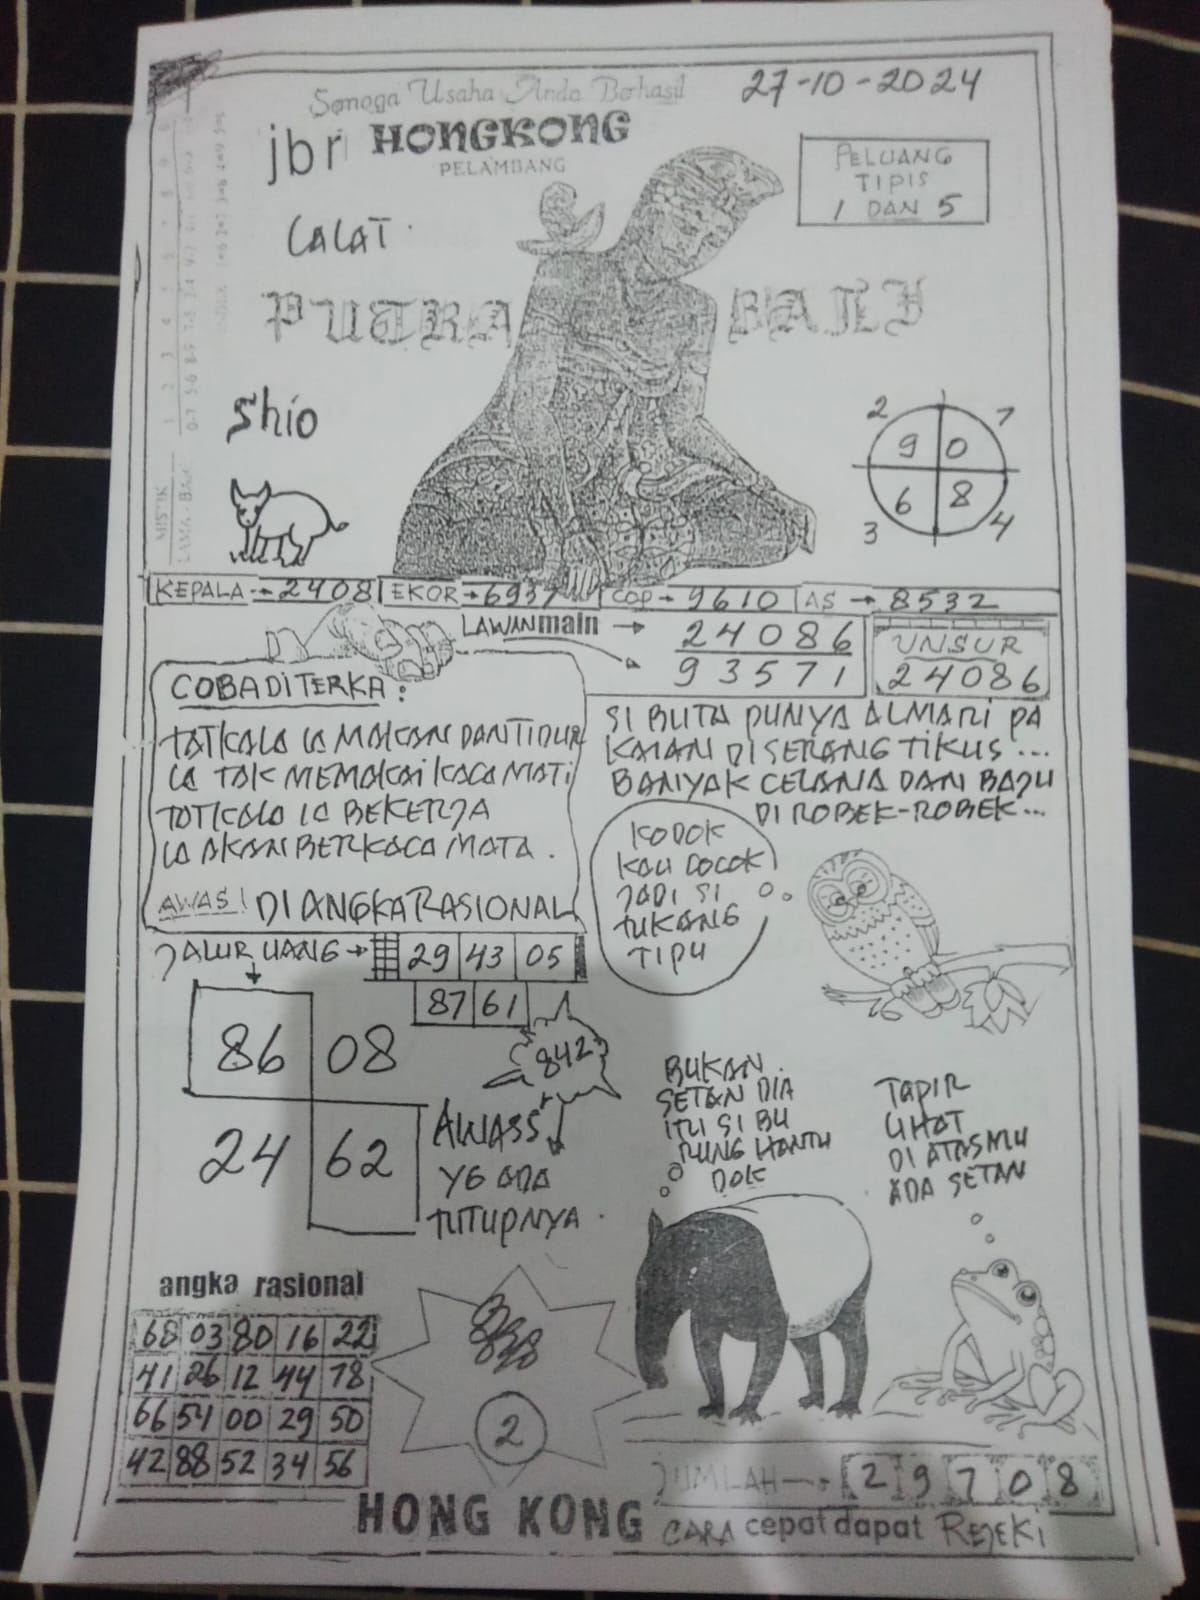 Semoga Usaha Anda Berhasil
27-10-2024
jbr HONGKONG
PELAMBANG
PELUANG
TIPIS
1 DAN 5
LALAT
PUTRA BALI
Shio
2 7
9 0
6 8
3 4
MISTIK
KEPALA → 2408 EKOR → 6937 COP → 9610 AS → 8532
LAWAN main → 24086
93571
UNSUR
24086
COBA DITERKA :
TATKALA IA MAKAN DAN TIDUR
IA TAK MEMAKAI KACA MATA
TATKALA IA BEKERJA
IA AKAN BERKACA MATA .
AWAS! DI ANGKA RASIONAL
SI BUTA PUNYA ALMARI PA
KAIAN DI SERANG TIKUS ...
BANYAK CELANA DAN BAJU
DI ROBEK-ROBEK ...
KODOK
KAU COCOK
JADI SI
TUKANG
TIPU
JALUR UANG → 29 43 05
87 61
86 08
24 62
842
AWASS
YG ADA
TUTUPNYA .
BUKAN
SETAN DIA
ITU SI BU
RUNG HANTU
DOK
TAPIR
LIHAT
DI ATASMU
ADA SETAN
angka rasional
68 03 80 16 22
41 26 12 44 78
66 54 00 29 50
42 88 52 34 56
2
JUMLAH → 2 9 7 0 8
HONG KONG
CARA cepat dapat REJEKI